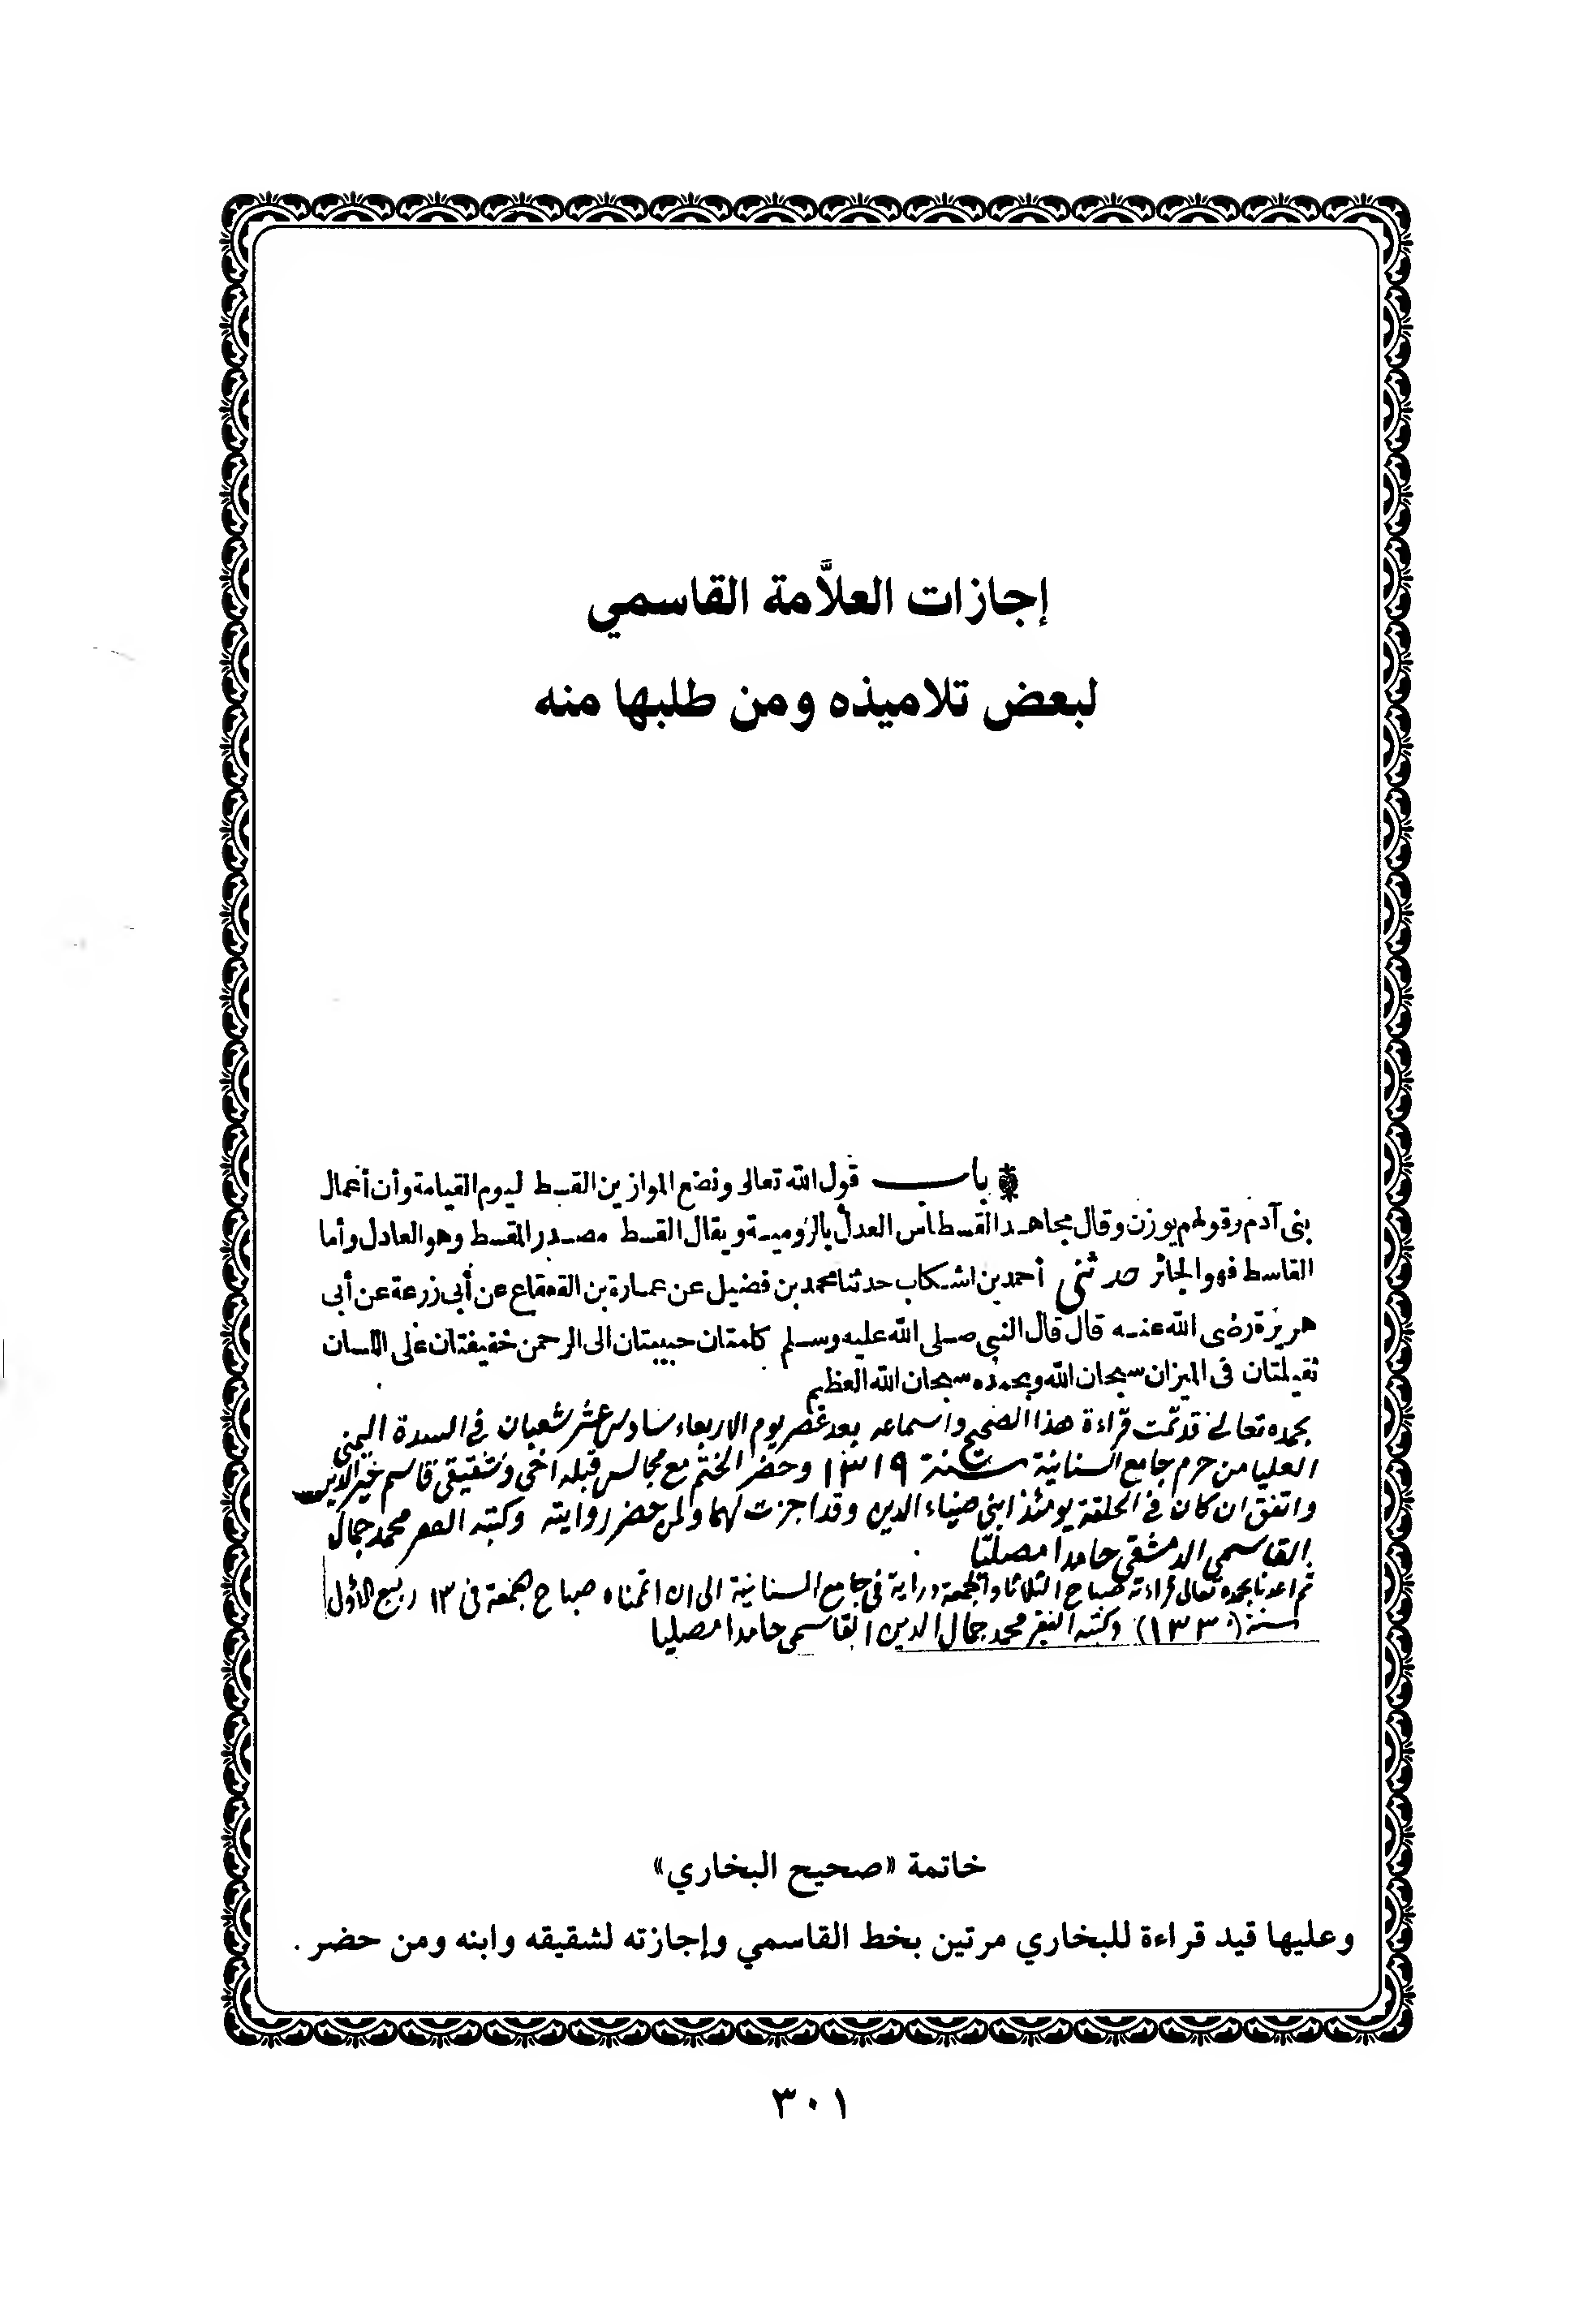 إجازات العلاَّمة القاسمي
لبعض تلاميذه ومن طلبها منه
باب قول الله تعالى ونضع الموازين القسط ليوم القيامة وأن أعمال
بنى آدم وقولهم يوزن وقال مجاهد القسطاس العدل بالرومية ويقال القسط مصدر المقسط وهو العادل وأما
القاسط فهو الجائر حدثنى أحمد بن اشكاب حدثنا محمد بن فضيل عن عمارة بن القعقاع عن أبى زرعة عن أبى
هريرة رضى الله عنه قال قال النبى صلى الله عليه وسلم كلمتان حبيبتان الى الرحمن خفيفتان على اللسان
ثقيلتان فى الميزان سبحان الله وبحمده سبحان الله العظيم
بحمده تعالى قد تمت قراءة هذا الصحيح واسماعه بعد عصر يوم الاربعاء سادس عشر شعبان في السدة اليمنى
العليا من حرم جامع السنانية سنة ١٣١٩ وحضر الختم مع مجالس قبله اخي وشقيقي قاسم خير الدين
واتفق ان كان في الحلقة يومئذ ابني ضياء الدين وقد اجزت لهما ولمن حضر روايته وكتبه محمد جمال
القاسمي الدمشقي حامدا مصليا
ثم اعدنا بحمده تعالى قراءته صباح الثلاثا والجمعة دراية في جامع السنانية الى ان اتممناه صباح جمعة في ١٣ ربيع الاول
سنة (١٣٣٠) وكتبه الفقير محمد جمال الدين القاسمي حامدا مصليا
خاتمة «صحيح البخاري»
وعليها قيد قراءة للبخاري مرتين بخط القاسمي وإجازته لشقيقه وابنه ومن حضر .
٣٠١